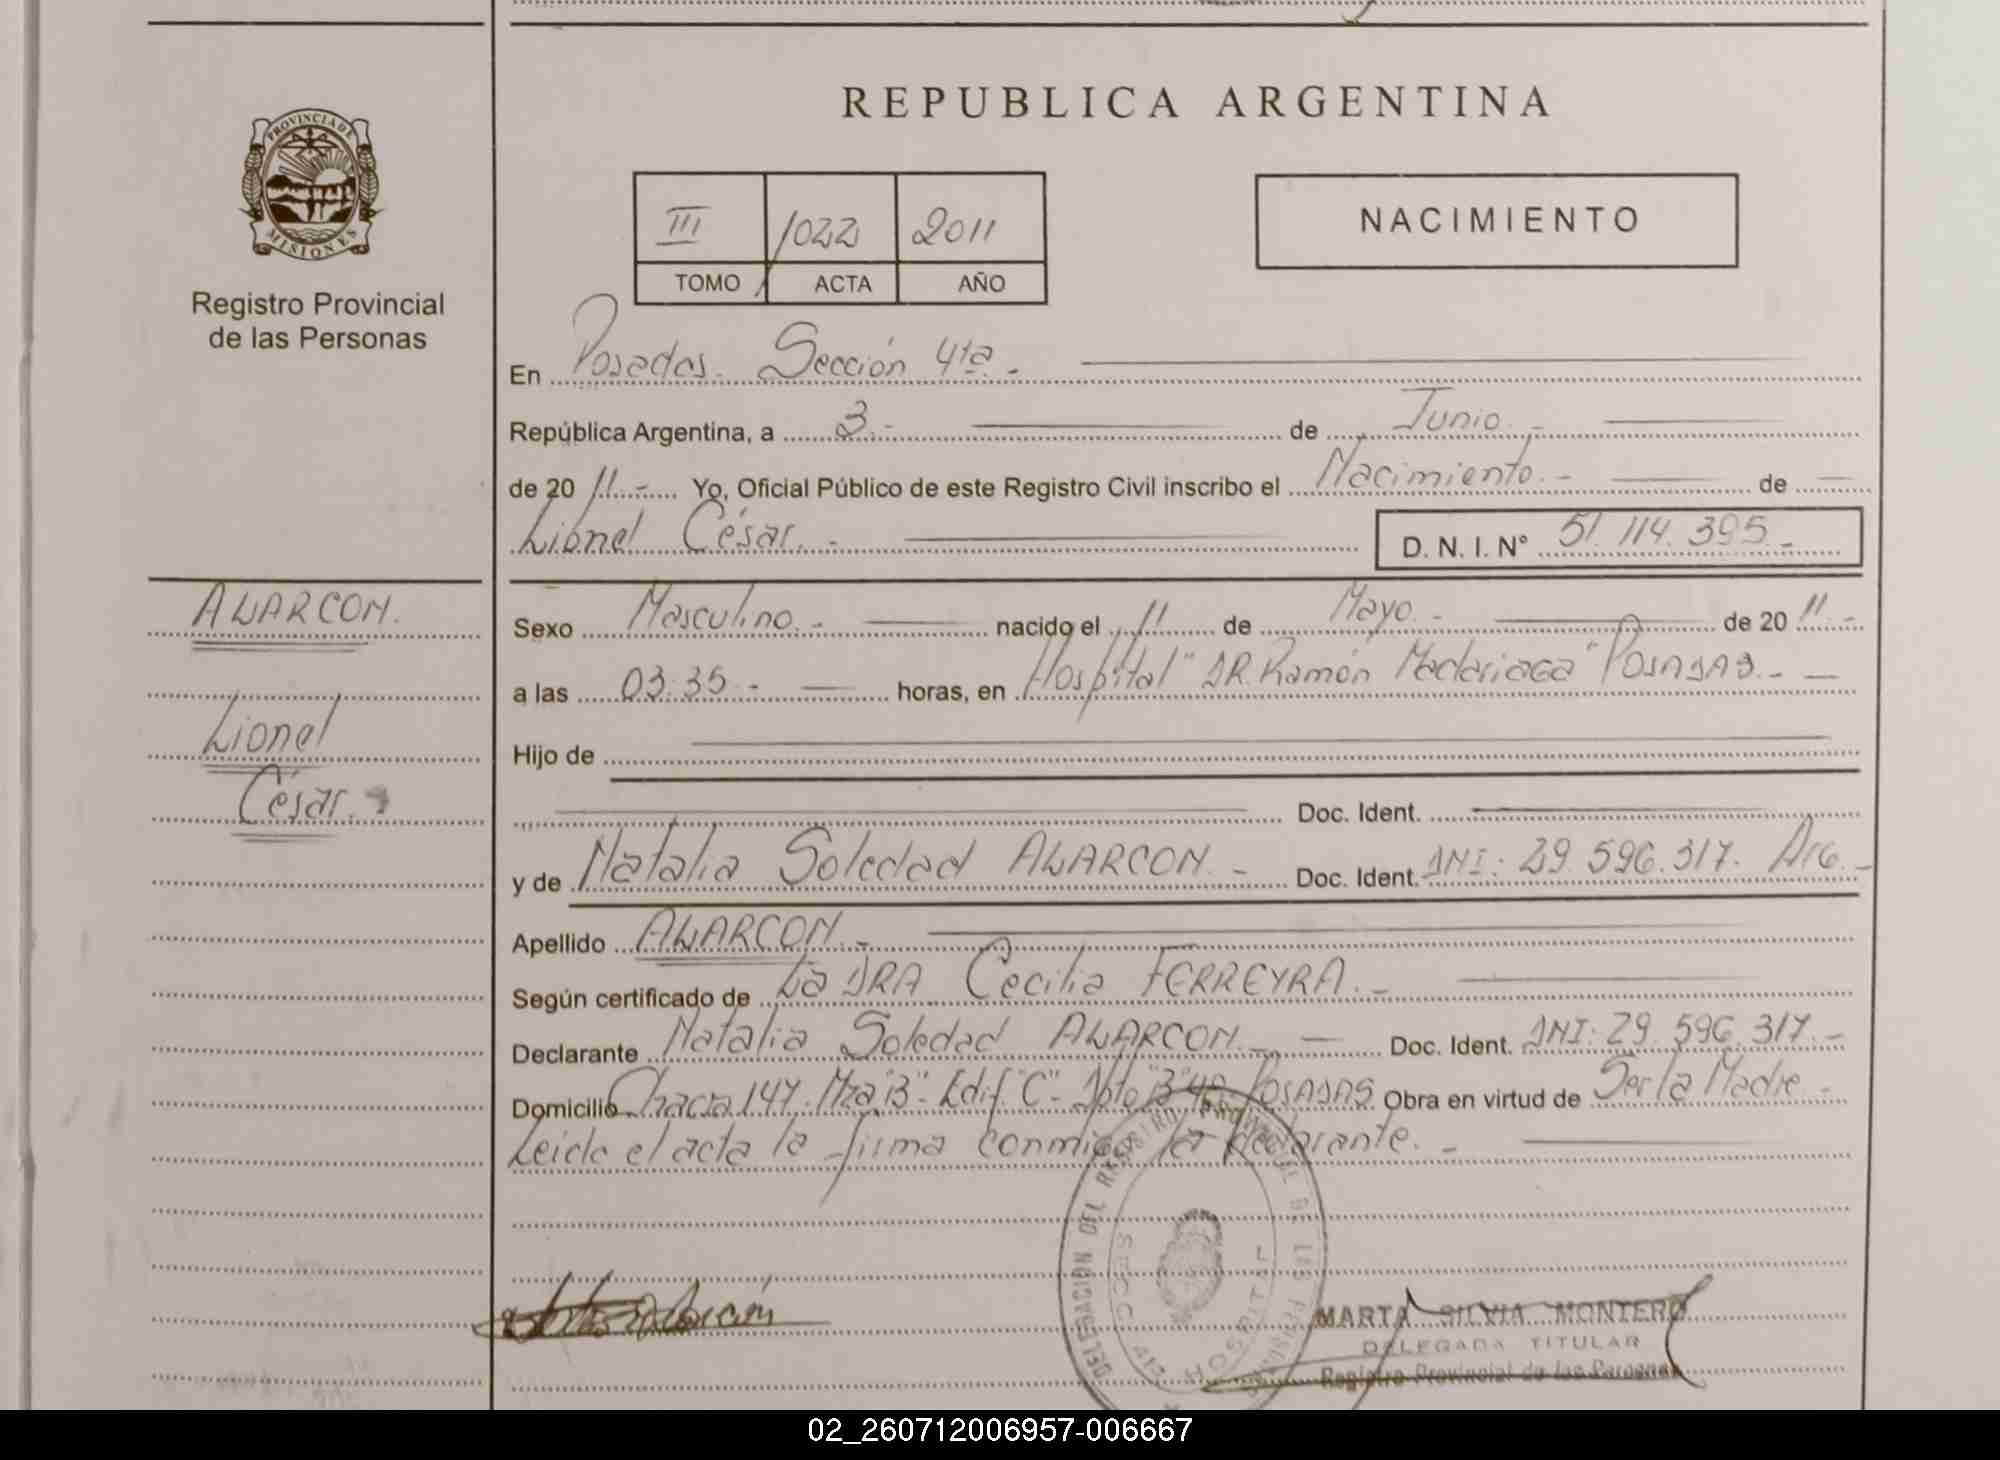 REPUBLICA ARGENTINA
PROVINCIA DE
MISIONES
Registro Provincial
de las Personas
III 1022 2011
TOMO ACTA AÑO
NACIMIENTO
En Posadas. Sección 4ta.-
República Argentina, a 3.- de Junio.-
de 2011.- Yo, Oficial Público de este Registro Civil inscribo el Nacimiento.- de
Lionel César.- D. N. I. Nº 51.114.395.-
ALARCON.
Lionel
César.
Sexo Masculino.- nacido el 11 de Mayo.- de 2011.-
a las 03:35.- horas, en Hospital "DR. Ramón Madariaga" POSADAS.-
Hijo de
Doc. Ident.
y de Natalia Soledad ALARCON.- Doc. Ident. DNI: 29.596.317. Arg.-
Apellido ALARCON.-
Según certificado de La DRA Cecilia FERREYRA.-
Declarante Natalia Soledad ALARCON.- Doc. Ident. DNI: 29.596.317.-
Domicilio Chacra 147. Mza "B"- Edif "C"- Dpto "3" POSADAS Obra en virtud de Ser la Madre-
Leida el acta la firma conmigo la declarante.-
DELEGACION DEL REGISTRO PROVINCIAL DE LAS PERSONAS
SECC. 4ta HOSPITAL
MARTA SILVIA MONTERO
DELEGADA TITULAR
Registro Provincial de las Personas
02_260712006957-006667